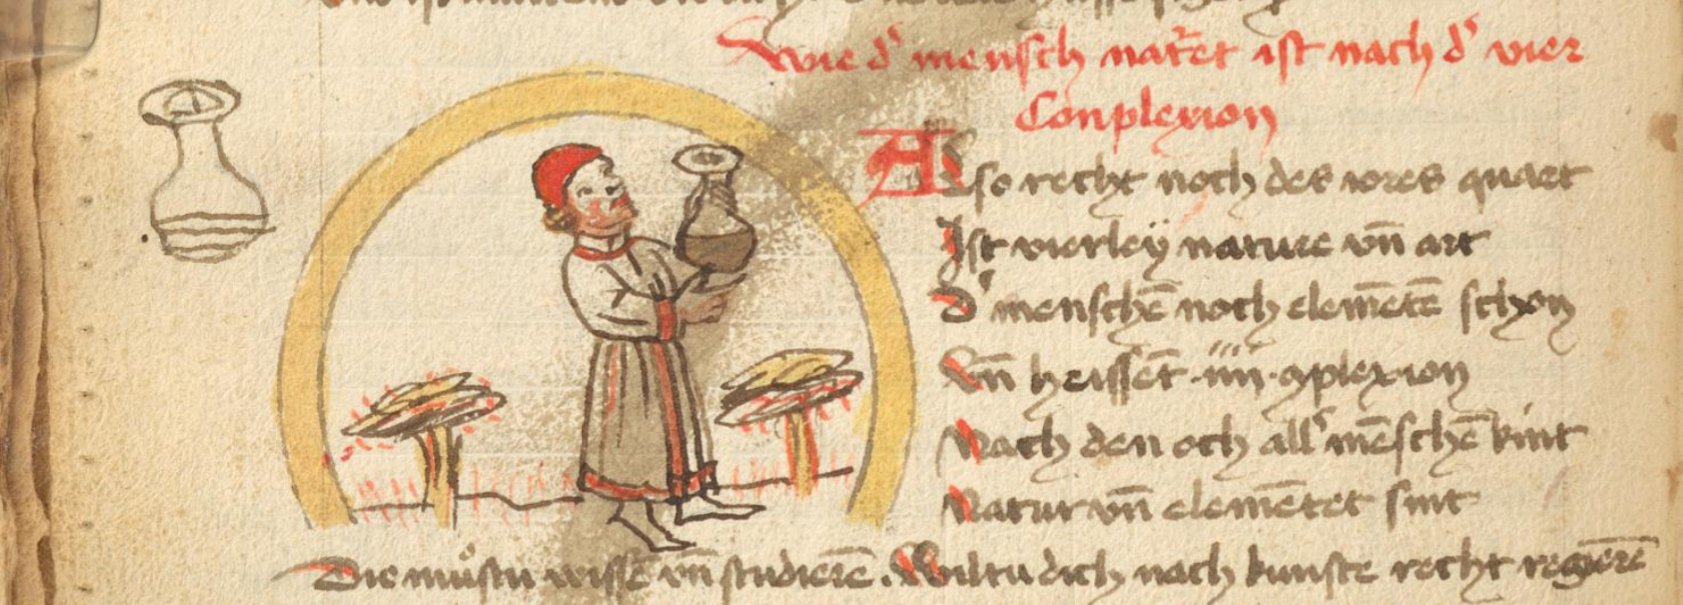 Wie d' mensch natᵉret ist nach d' vier
Conplexion
Also recht noch des iores quart
Ist vierleÿ nature vn̄ art
D' menschē noch elemētē schon
Vn̄ heissēt ·iiii· ꝯplexion
Nach den och all' mēschē kint
Natur vn̄ elemētet sint
Die muͦstu wissē vn̄ studierē . Wiltu dich nach kunste recht regierē